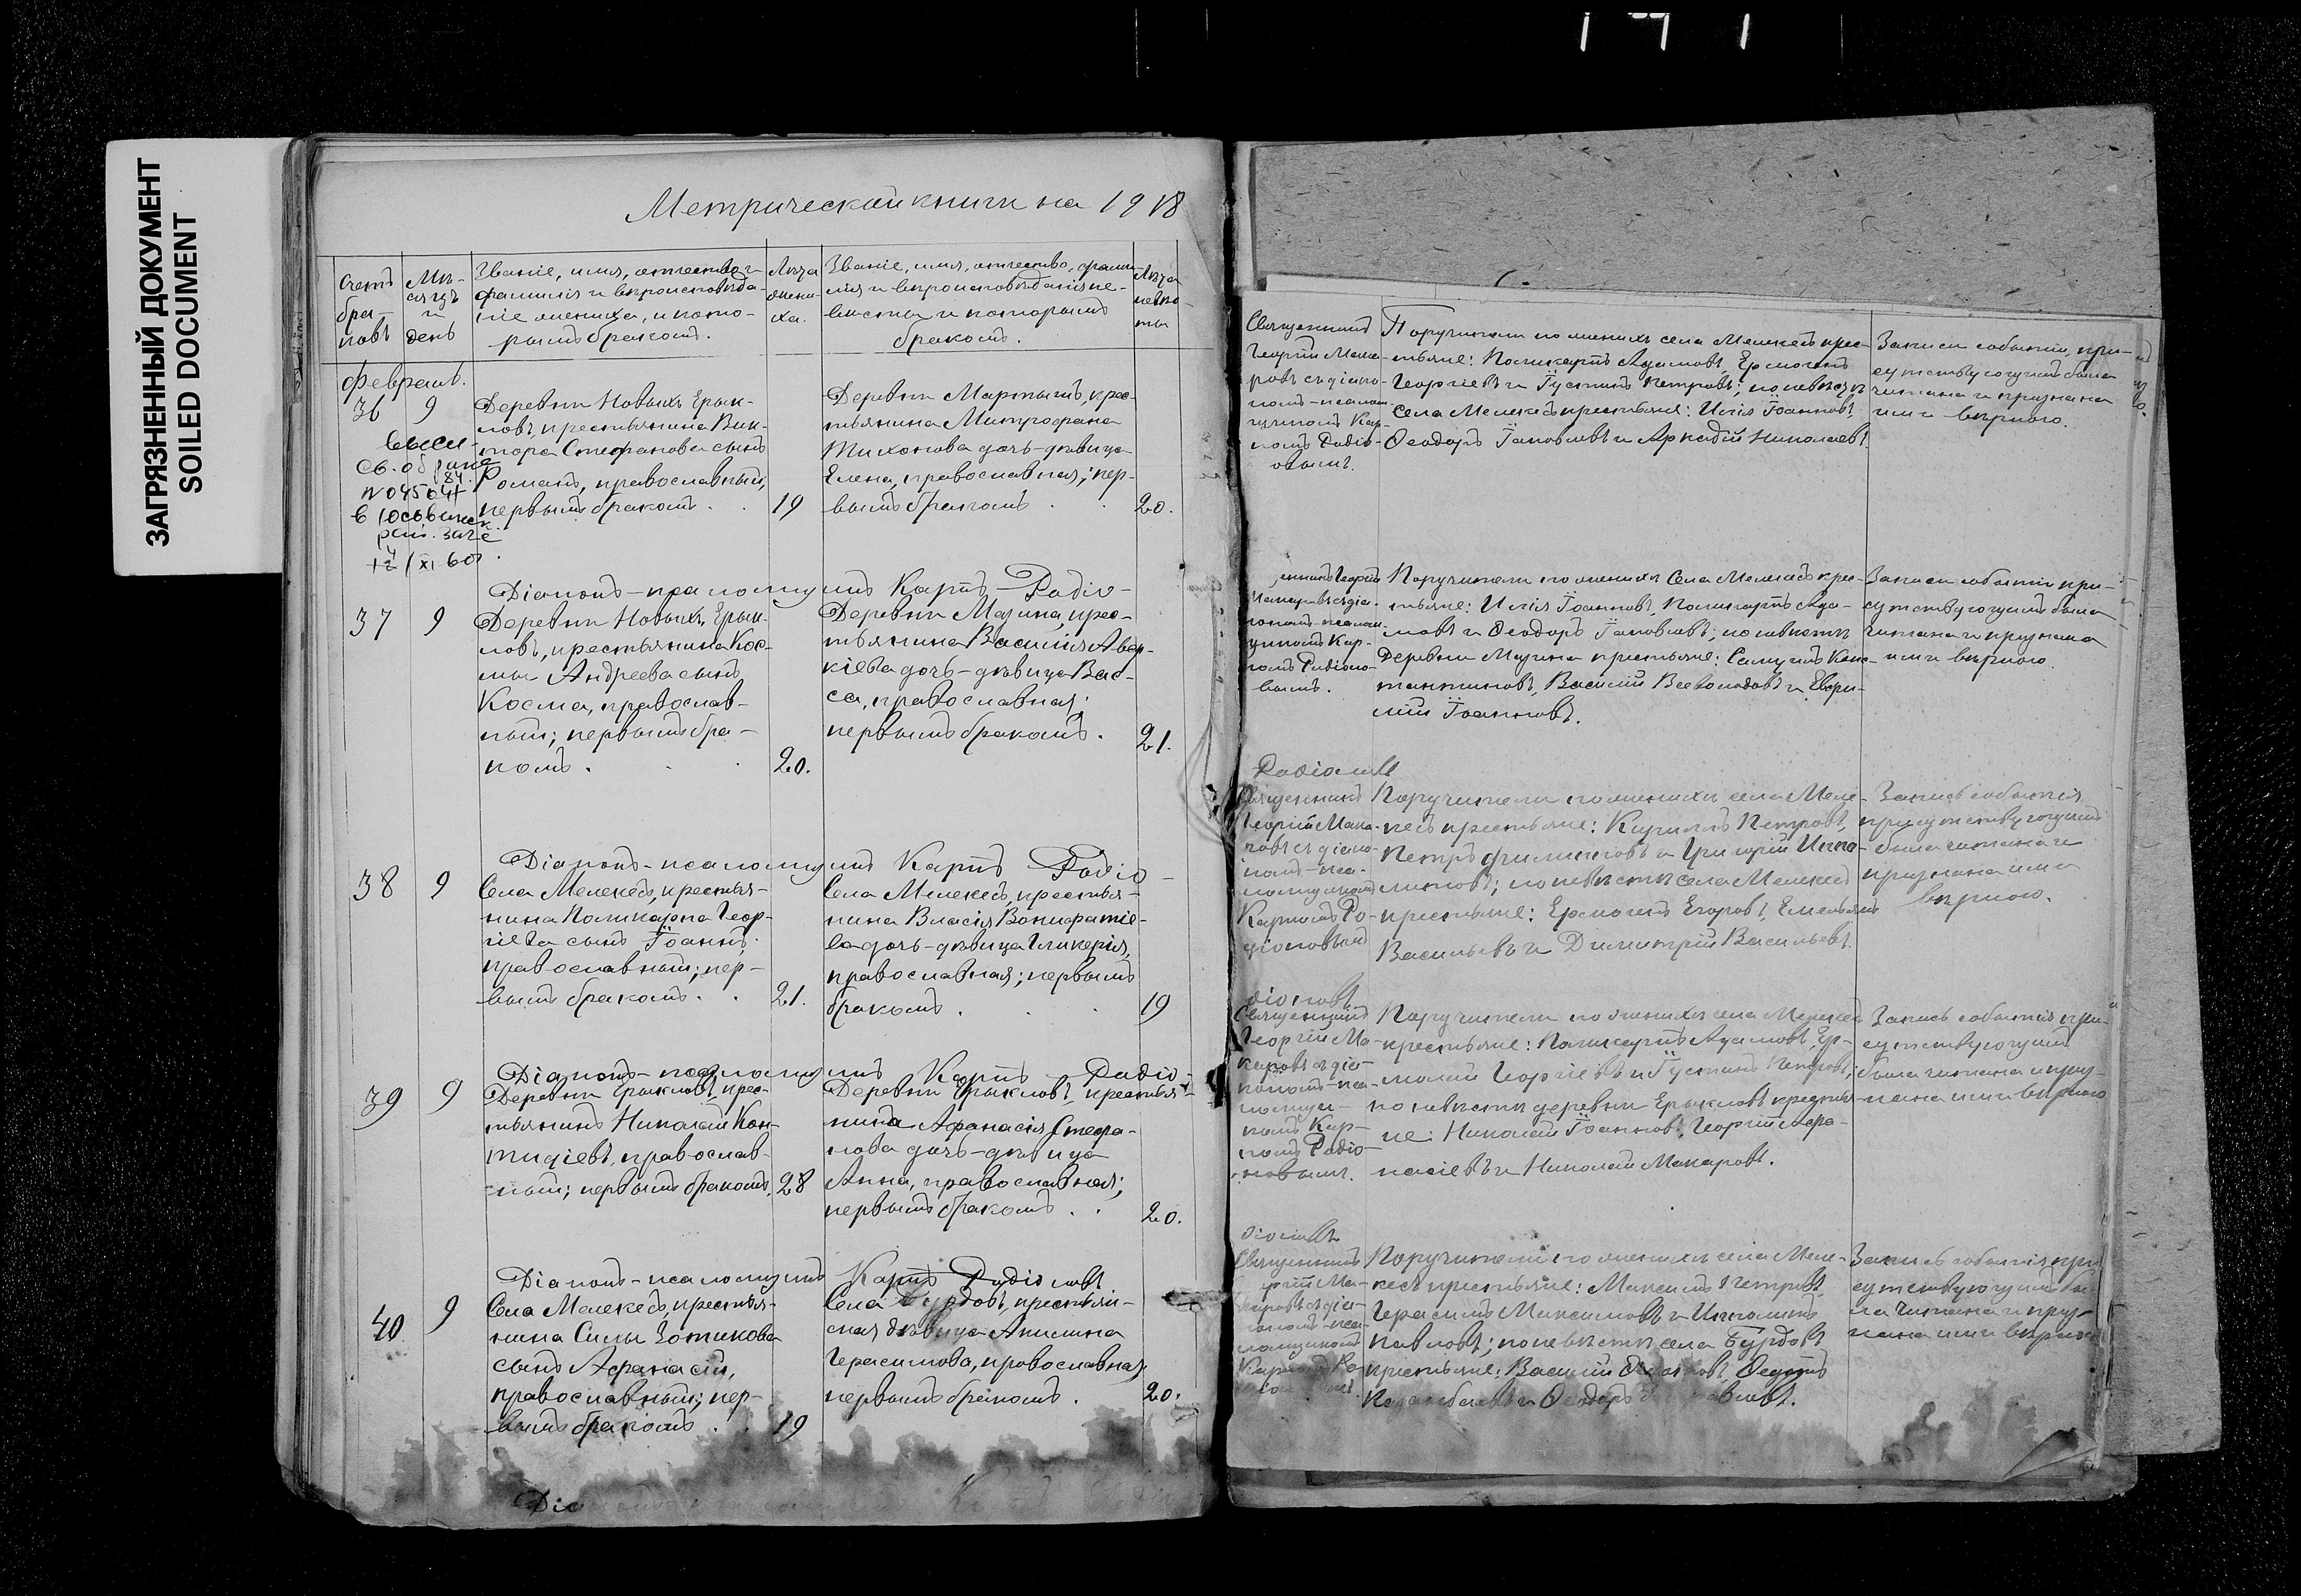 ЗАГРЯЗНЕННЫЙ ДОКУМЕНТ
SOILED DOCUMENT
Метрической книги на 1918
Счетъ
бра-
ковъ
Мѣ-
сяцъ
и
день
Званіе, имя, отчество и
фамилія и вѣроисповѣда-
ніе жениха, и кото-
рымъ бракомъ.
Лѣта
жени-
ха.
Званіе, имя, отчество, фами-
лія и вѣроисповѣданіе не-
вѣсты и которымъ
бракомъ.
Лѣта
невѣс-
ты
Февраль.
36 9
св. о браке
12/XI 60
Деревни Новыхъ Ерык-
ловъ, крестьянина Вик-
тора Стефанова сынъ
Романъ, православный,
первымъ бракомъ. 19
Деревни Мартышъ, крес-
тьянина Митрофана
Тихонова дочь-дѣвица
Елена, православная; пер-
вымъ бракомъ 20.
Діаконъ-псаломщикъ Карпъ Радіо-
37 9
Деревни Новыхъ Ерык-
ловъ, крестьянина Кос-
мы Андреева сынъ
Косма, православ-
ный; первымъ бра-
комъ. 20.
Деревни Мазина, крес-
тьянина Василія Авер-
кіева дочь-дѣвица Вас-
са, православная;
первымъ бракомъ. 21.
Діаконъ-псаломщикъ Карпъ Радіо-
38 9
Села Мелекесъ, крестья-
нина Поликарпа Геор-
гіева сынъ Іоаннъ,
православный; пер-
вымъ бракомъ. 21.
Села Мелекесъ, крестья-
нина Власія Вонифатіе-
ва дочь-дѣвица Гликерія,
православная; первымъ
бракомъ. 19
Діаконъ-псаломщикъ Карпъ Радіо-
39 9
Деревни Ерыкловъ, крес-
тьянинъ Николай Кон-
тидіевъ, православ-
ный; первымъ бракомъ, 28
Деревни Ерыкловъ, крестья-
нина Афанасія Стефа-
нова дочь-дѣвица
Анна, православная;
первымъ бракомъ. 20.
Діаконъ-псаломщикъ Карпъ Радіоновъ
40 9
Села Мелекесъ, крестья-
нина Силы Зотикова
сынъ Афанасій,
православный; пер-
вымъ бракомъ. 19
Села Бурдовъ, крестьян-
ская дѣвица Акилина
Герасимова, православная,
первымъ бракомъ. 20.
Священникъ
Георгій Мака-
ровъ съ діако-
номъ-псалом-
щикомъ Кар-
помъ Радіо-
овымъ.
Поручители по женихѣ села Мелекесъ крес-
тьяне: Поликарпъ Адамовъ, Ермогенъ
Георгіевъ и Іустинъ Петровъ; по невѣстѣ
села Мелекесъ крестьяне: Илія Іоанновъ,
Ѳеодоръ Іаковлевъ и Аркадій Николаевъ.
Записи событія, при-
сутствующимъ была
читана и признана
ими вѣрною.
Георгій
Макаровъ съ діа-
кономъ-псалом-
щикомъ Кар-
помъ Радіоно-
вымъ.
Поручители по женихѣ села Мелекесъ крес-
тьяне: Илія Іоанновъ, Поликарпъ Ада-
мовъ и Ѳеодоръ Іаковлевъ; по невѣстѣ
деревни Мазина крестьяне: Самуилъ Конс-
тантиновъ, Василій Всеволодовъ и Евѳи-
мій Іоанновъ.
Записи событія при-
сутствующимъ была
читана и признана
ими вѣрною.
Радіоновъ
Священникъ
Георгій Мака-
ровъ съ діако-
номъ-пса-
ломщикомъ
Карпомъ Ра-
діоновымъ
Поручители по женихѣ села Меле-
кесъ крестьяне: Кириллъ Петровъ,
Петръ Филипповъ и Григорій Иппо-
литовъ; по невѣстѣ села Мелекесъ
крестьяне: Ермогенъ Егоровъ, Емельянъ
Васильевъ и Димитрій Васильевъ.
Запись событія
присутствующимъ
была читана и
признана ими
вѣрною.
діоновъ
Священникъ
Георгій Ма-
каровъ съ діа-
кономъ-пса-
ломщи-
комъ Кар-
помъ Радіо-
новымъ.
Поручители по женихѣ села Мелекесъ
крестьяне: Поликарпъ Адамовъ, Ер-
молай Георгіевъ и Іустинъ Петровъ;
по невѣстѣ деревни Ерыкловъ крестья-
не: Николай Іоанновъ, Георгій Афа-
насіевъ и Николай Макаровъ.
Запись событія при-
сутствующимъ
была читана и приз-
нана ими вѣрною
Священникъ
Поручители по женихѣ села Меле-
кесъ крестьяне: Максимъ Петровъ,
Герасимъ Максимовъ и Ипполитъ
Павловъ; по невѣстѣ села Бурдовъ
крестьяне: Василій
Запись событія при
сутствующимъ бы-
ла читана и приз-
нана ими вѣрною